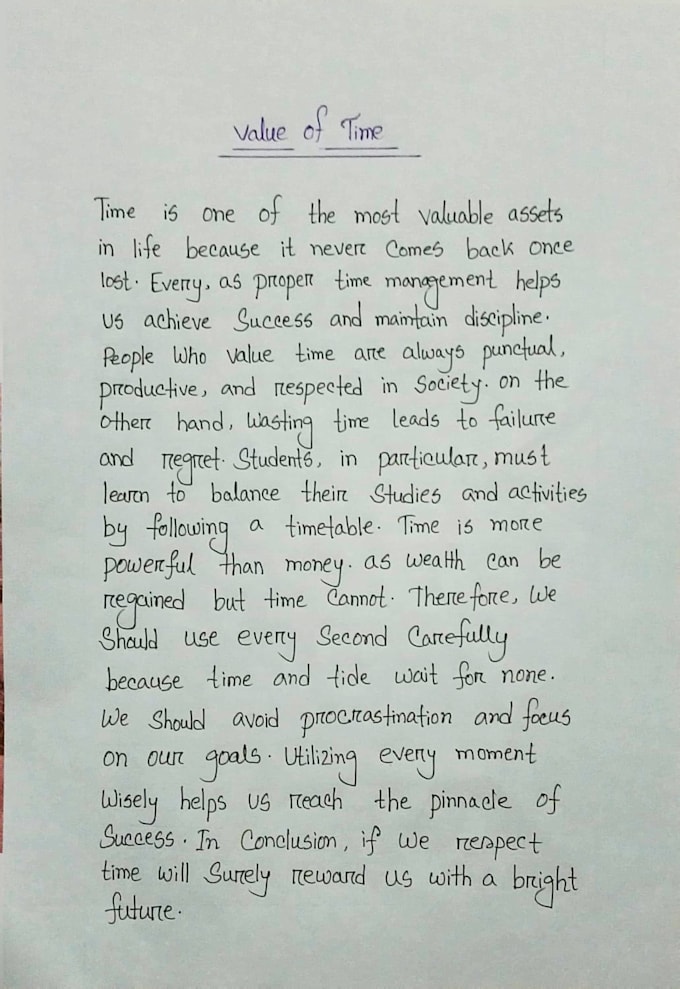 Value of Time
Time is one of the most valuable assets
in life because it never Comes back once
lost. Every, as proper time management helps
us achieve Success and maintain discipline.
People Who value time are always punctual,
productive, and respected in Society. on the
other hand, Wasting time leads to failure
and regret. Students, in particular, must
learn to balance their Studies and activities
by following a timetable. Time is more
powerful than money. as wealth can be
regained but time Cannot. Therefore, We
Should use every Second Carefully
because time and tide wait for none.
We Should avoid procrastination and focus
on our goals. Utilizing every moment
Wisely helps us reach the pinnacle of
Success. In Conclusion, if we respect
time will Surely reward us with a bright
future.